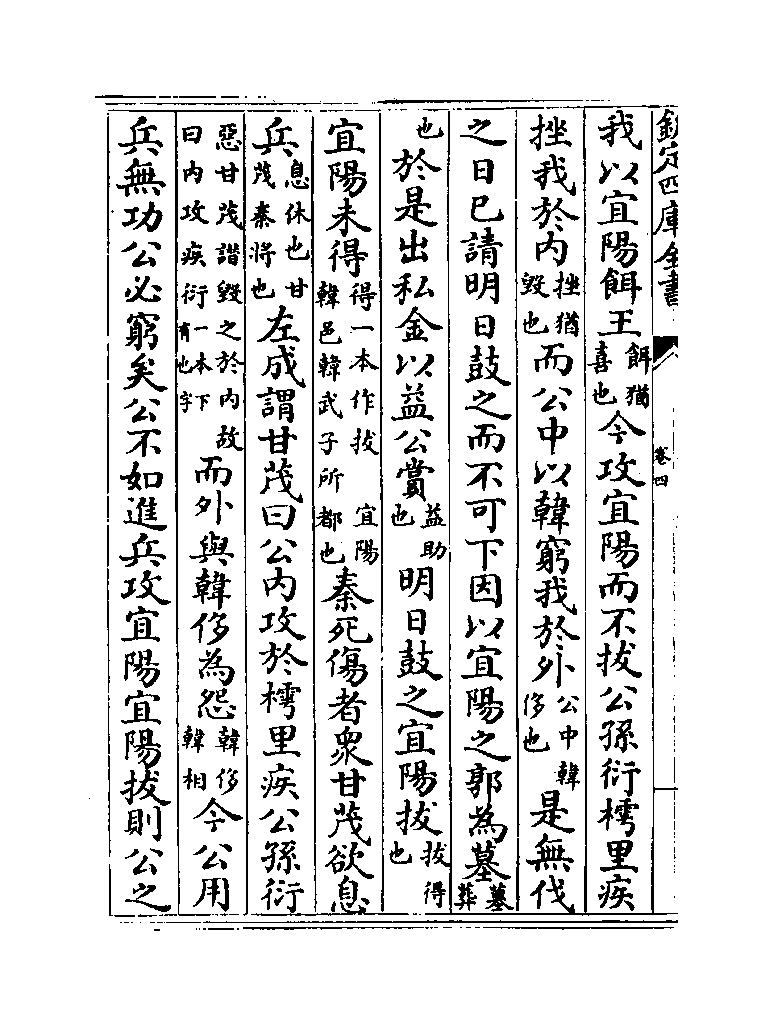 欽定四庫全書
卷四
我以宜陽餌王餌猶喜也今攻宜陽而不拔公孫衍樗里疾
挫我於内挫猶毀也而公中以韓窮我於外公中韓侈也是無伐
之日已請明日鼓之而不可下因以宜陽之郭為墓墓葬
也於是出私金以益公賞益助也明日鼓之宜陽拔拔得也
宜陽未得得一本作拔宜陽韓邑韓武子所都也秦死傷者衆甘茂欲息
兵息休也甘茂秦將也左成謂甘茂曰公内攻於樗里疾公孫衍
惡甘茂譖毀之於内故曰内攻疾衍一本下有也字而外與韓侈為怨韓侈韓相今公用
兵無功公必窮矣公不如進兵攻宜陽宜陽拔則公之